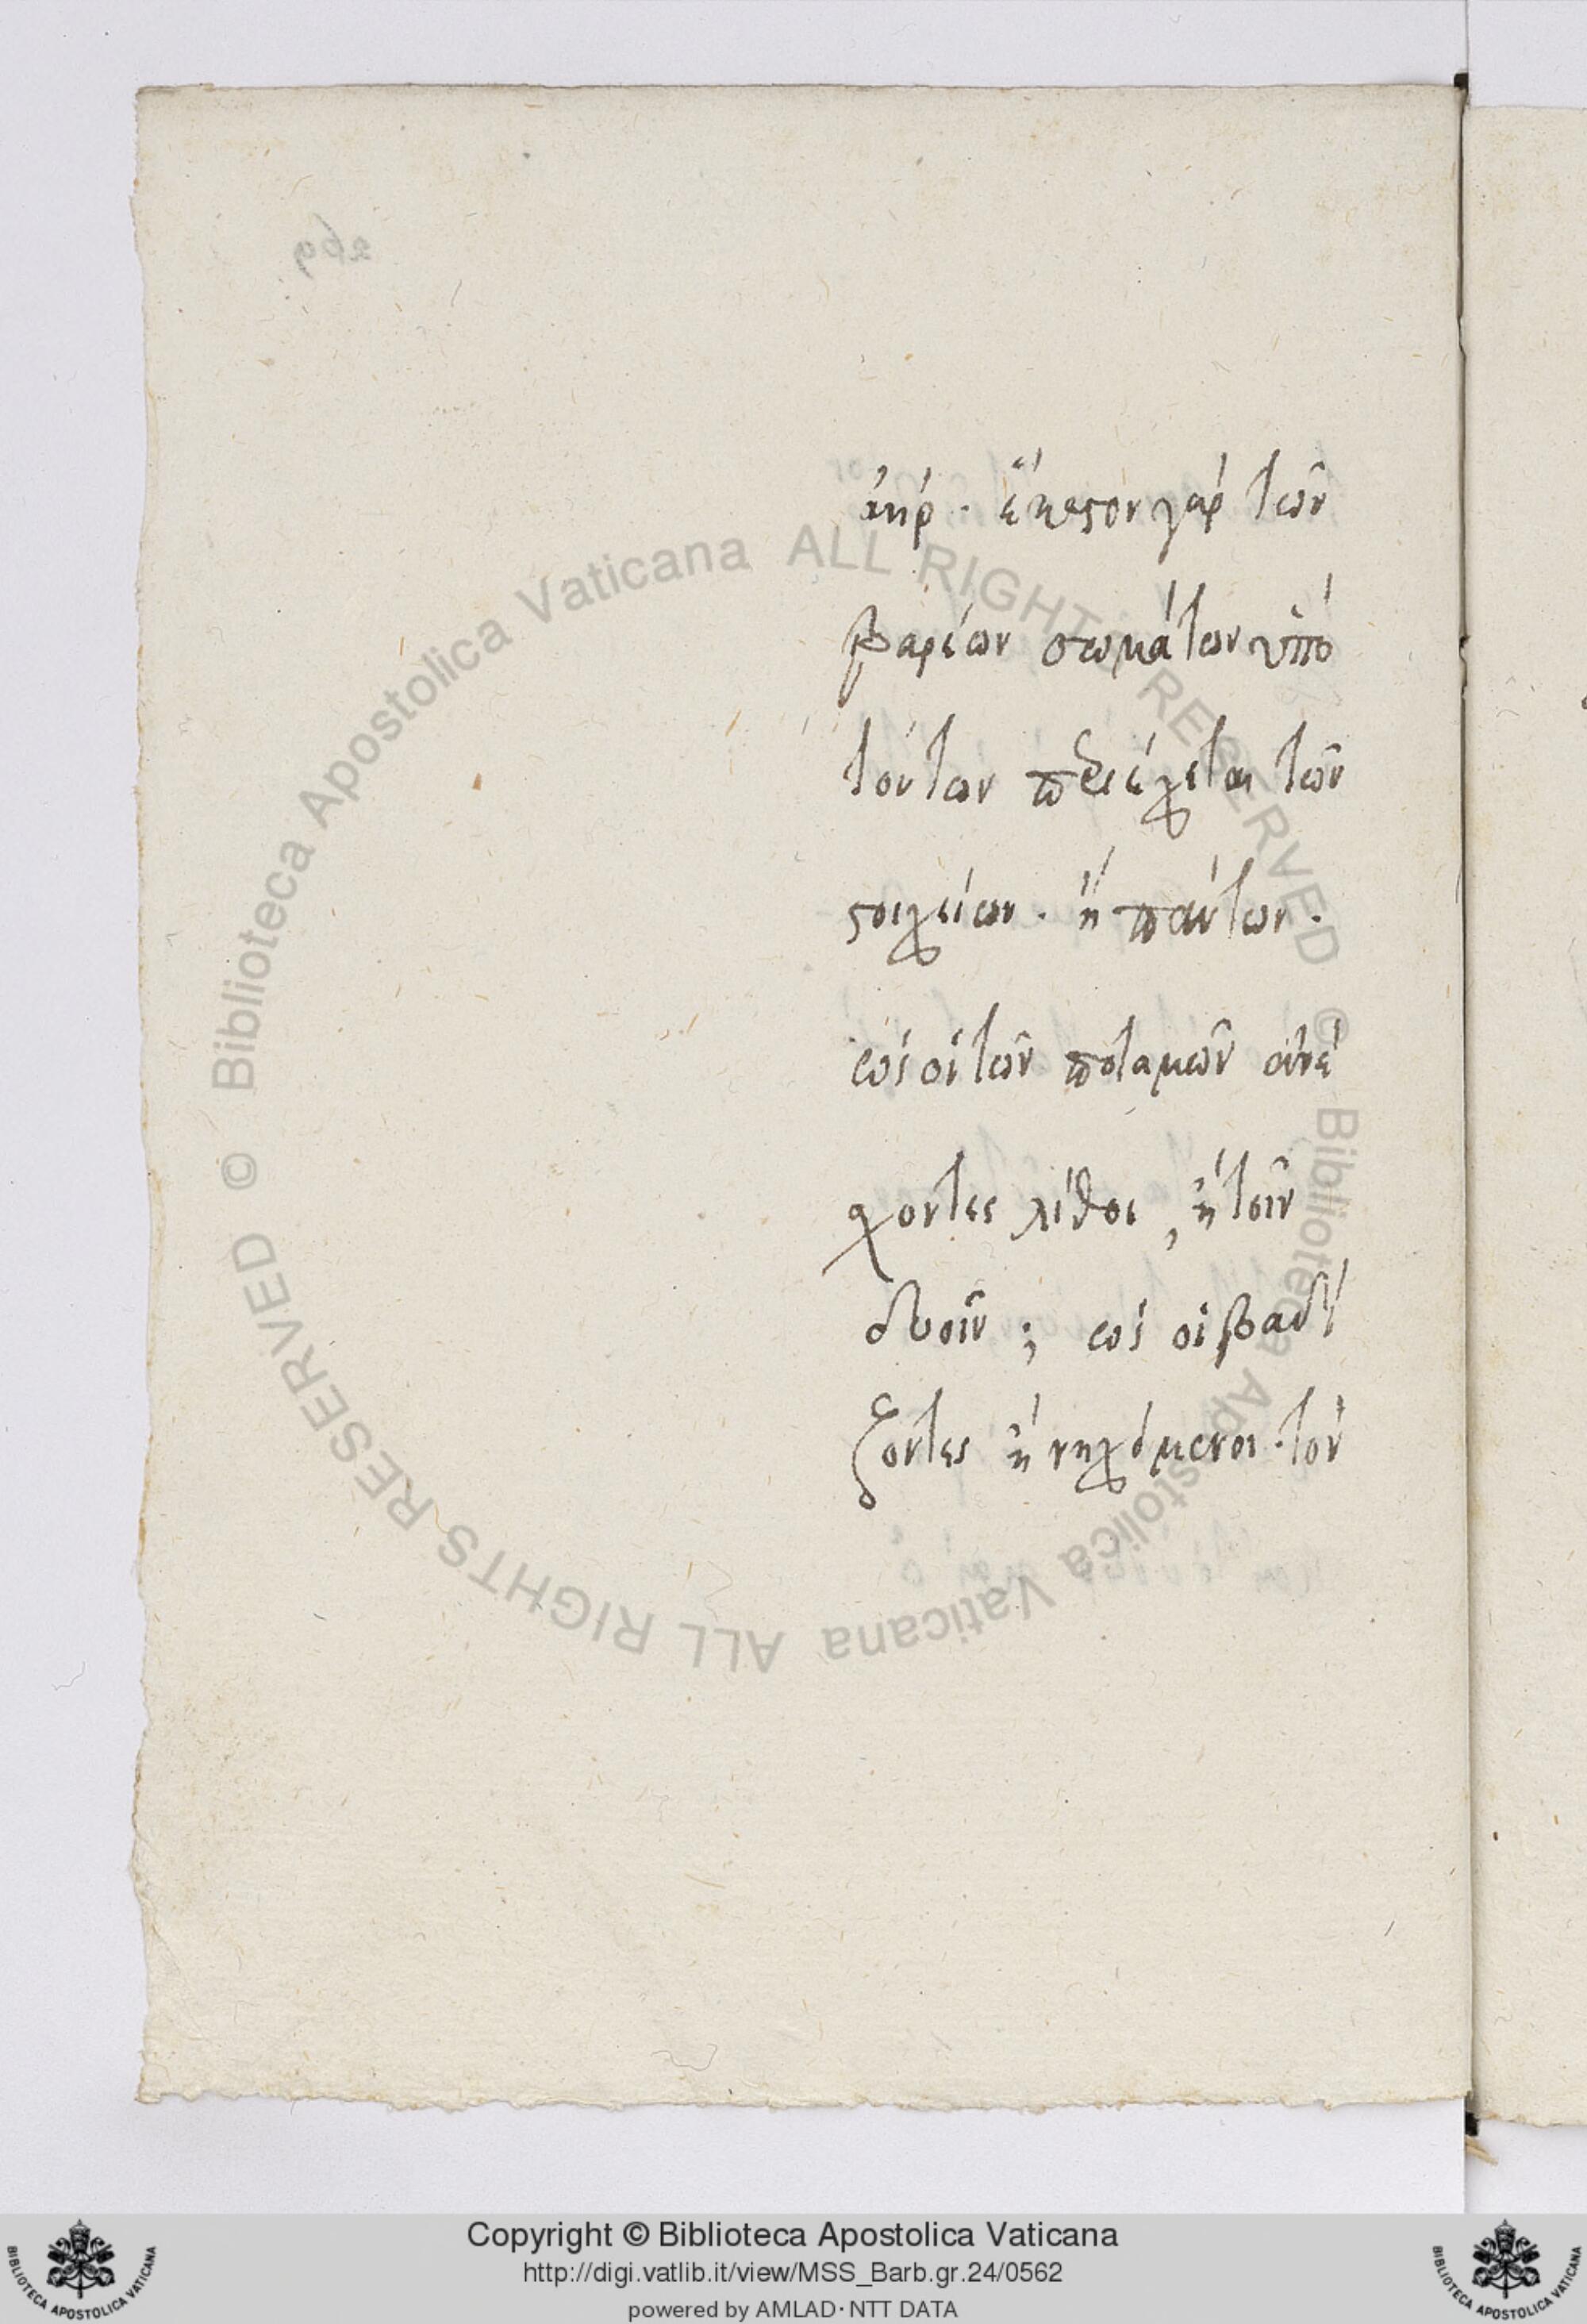 ἀήρ. ἕκαστον γὰρ τῶν
βαρέων σωμάτων ὑπὸ
τούτων περιέχεται τῶν
στοιχείων. ἢ πάντων.
ὡς οἱ τῶν ποταμῶν ἀνέ
χοντες λίθοι, ἢ τοῖν
δυοῖν; ὡς οἱ βαδί
ζοντες ἢ νηχόμενοι. τὸν
269
© Biblioteca Apostolica Vaticana ALL RIGHTS RESERVED © Biblioteca Apostolica Vaticana ALL RIGHTS RESERVED
Copyright © Biblioteca Apostolica Vaticana
http://digi.vatlib.it/view/MSS_Barb.gr.24/0562
powered by AMLAD · NTT DATA
BIBLIOTECA APOSTOLICA VATICANA
BIBLIOTECA APOSTOLICA VATICANA